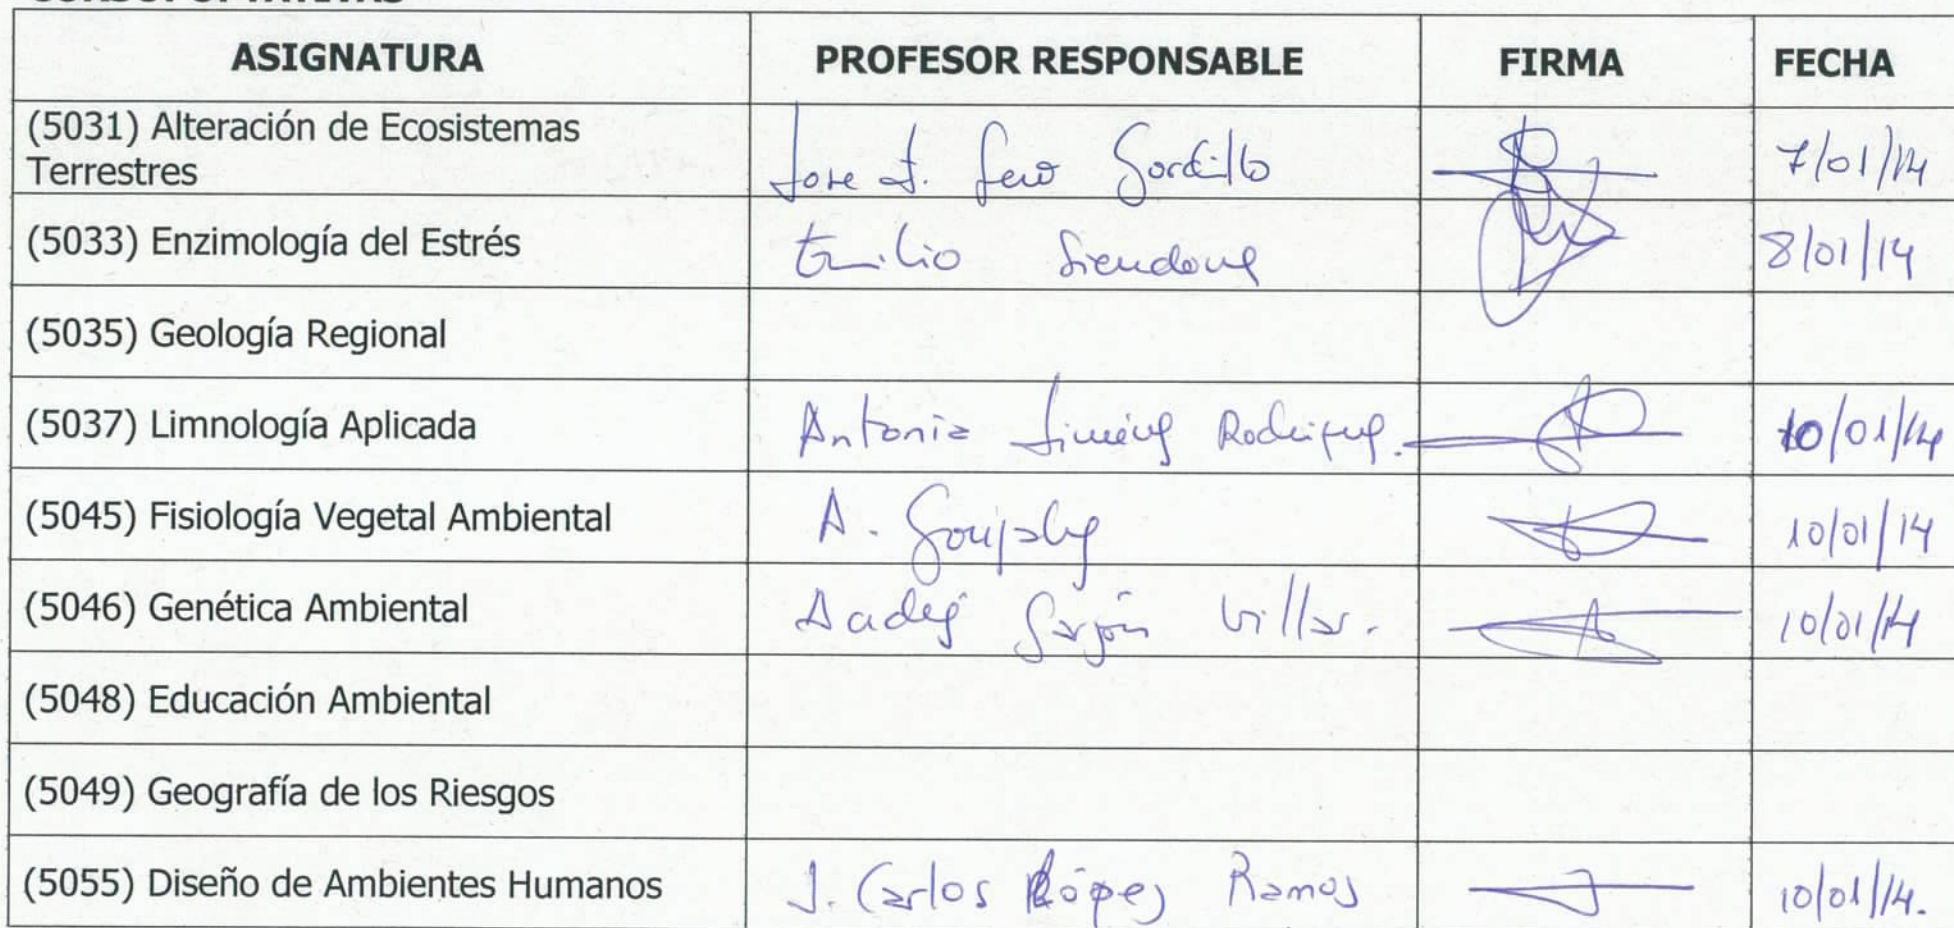 ASIGNATURA PROFESOR RESPONSABLE FIRMA FECHA
(5031) Alteración de Ecosistemas
Terrestres
Jose J. Gordillo 7/01/14
(5033) Enzimología del Estrés Emilio Siendones 8/01/14
(5035) Geología Regional
(5037) Limnología Aplicada Antonia Jiménez Rodríguez. 10/01/14
(5045) Fisiología Vegetal Ambiental A. González 10/01/14
(5046) Genética Ambiental Villar. 10/01/14
(5048) Educación Ambiental
(5049) Geografía de los Riesgos
(5055) Diseño de Ambientes Humanos J. Carlos López Ramos 10/01/14.